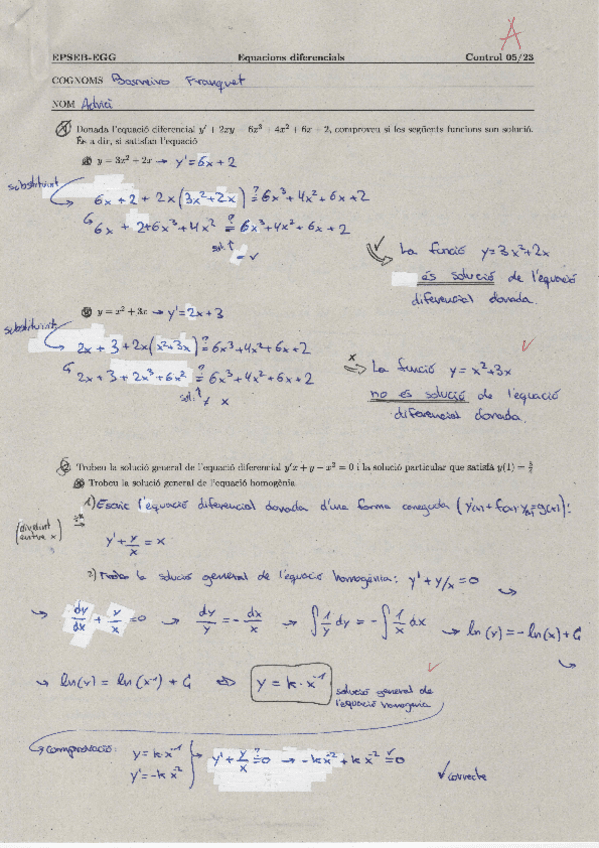 A
EPSEB-EGG Equacions diferencials Control 05/23
COGNOMS Barreiro Franquet
NOM Adrià
1 Donada l'equació diferencial y' + 2xy = 6x³ + 4x² + 6x + 2, comproveu si les següents funcions son solució.
És a dir, si satisfan l'equació
a) y = 3x² + 2x → y' = 6x + 2
substituint
6x + 2 + 2x (3x² + 2x) ≟ 6x³ + 4x² + 6x + 2
6x + 2 + 6x³ + 4x² ≟ 6x³ + 4x² + 6x + 2
sol. ↑
= ✓
✓ La funció y = 3x² + 2x
és solució de l'equació
diferencial donada.
b) y = x² + 3x → y' = 2x + 3
substituint
2x + 3 + 2x (x² + 3x) ≟ 6x³ + 4x² + 6x + 2
2x + 3 + 2x³ + 6x² ≟ 6x³ + 4x² + 6x + 2
sol. ↑
≠ x
x La funció y = x² + 3x
no és solució de l'equació
diferencial donada.
2 Trobeu la solució general de l'equació diferencial y'x + y − x² = 0 i la solució particular que satisfà y(1) =
a) Trobeu la solució general de l'equació homogènia
1) Escric l'equació diferencial donada d'una forma coneguda (y'(x) + f(x)·y(x) = g(x)):
(dividint entre x) ⇒
y' + y/x = x
2) la solució general de l'equació homogènia: y' + y/x = 0
→ dy/dx + y/x = 0 → dy/y = − dx/x → ∫ 1/y dy = − ∫ 1/x dx → ln(y) = − ln(x) + C₁
→ ln(y) = ln(x⁻¹) + C₁ ⇔ y = k · x⁻¹ solució general de
l'equació homogènia
comprovació: y = k x⁻¹
y' = −k x⁻² → y' + y/x ≟ 0 → −k x⁻² + k x⁻² = 0 ✓
✓ correcte